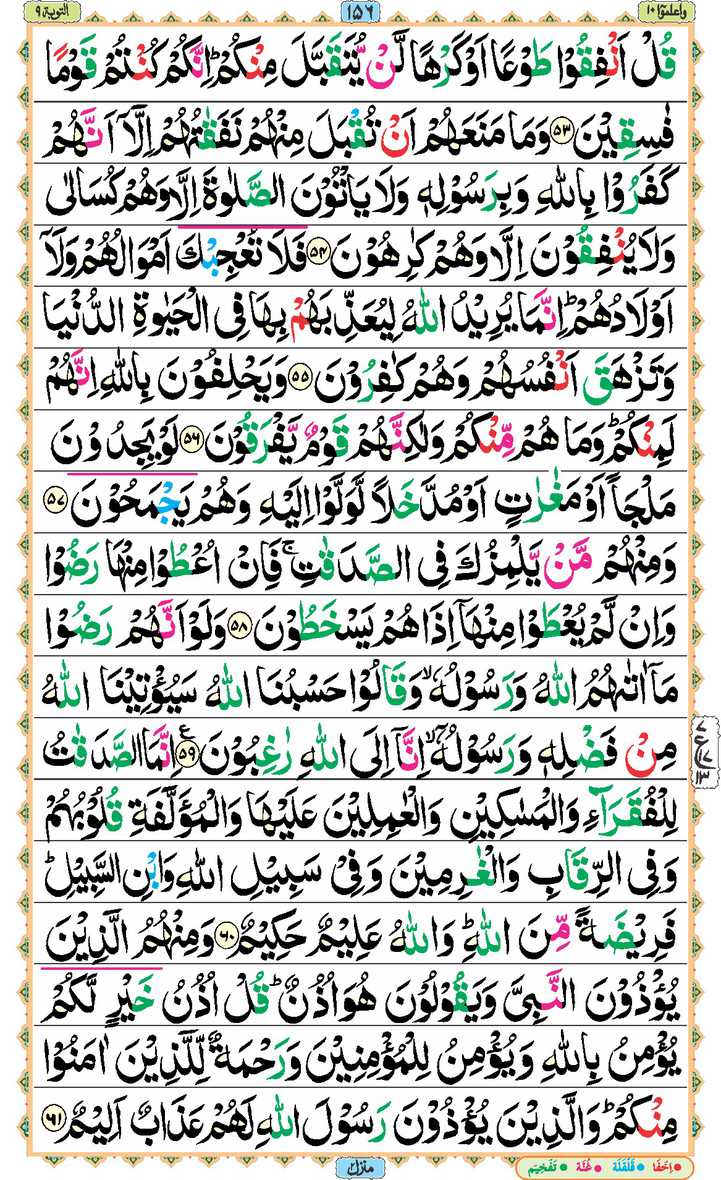 واعلموۤا ۱۰
۱۵۶
التوبة ۹
قُلْ اَنْفِقُوْا طَوْعًا اَوْ كَرْهًا لَّنْ يُّتَقَبَّلَ مِنْكُمْ ؕ اِنَّكُمْ كُنْتُمْ قَوْمًا
فٰسِقِيْنَ ۝۵۳ وَمَا مَنَعَهُمْ اَنْ تُقْبَلَ مِنْهُمْ نَفَقٰتُهُمْ اِلَّاۤ اَنَّهُمْ
كَفَرُوْا بِاللّٰهِ وَبِرَسُوْلِهٖ وَلَا يَاْتُوْنَ الصَّلٰوةَ اِلَّا وَهُمْ كُسَالٰى
وَلَا يُنْفِقُوْنَ اِلَّا وَهُمْ كٰرِهُوْنَ ۝۵۴ فَلَا تُعْجِبْكَ اَمْوَالُهُمْ وَلَاۤ
اَوْلَادُهُمْ ؕ اِنَّمَا يُرِيْدُ اللّٰهُ لِيُعَذِّبَهُمْ بِهَا فِى الْحَيٰوةِ الدُّنْيَا
وَتَزْهَقَ اَنْفُسُهُمْ وَهُمْ كٰفِرُوْنَ ۝۵۵ وَيَحْلِفُوْنَ بِاللّٰهِ اِنَّهُمْ
لَمِنْكُمْ ؕ وَمَا هُمْ مِّنْكُمْ وَلٰكِنَّهُمْ قَوْمٌ يَّفْرَقُوْنَ ۝۵۶ لَوْ يَجِدُوْنَ
مَلْجَاً اَوْ مَغٰرٰتٍ اَوْ مُدَّخَلًا لَّوَلَّوْا اِلَيْهِ وَهُمْ يَجْمَحُوْنَ ۝۵۷
وَمِنْهُمْ مَّنْ يَّلْمِزُكَ فِى الصَّدَقٰتِ ۚ فَاِنْ اُعْطُوْا مِنْهَا رَضُوْا
وَاِنْ لَّمْ يُعْطَوْا مِنْهَاۤ اِذَا هُمْ يَسْخَطُوْنَ ۝۵۸ وَلَوْ اَنَّهُمْ رَضُوْا
مَاۤ اٰتٰىهُمُ اللّٰهُ وَرَسُوْلُهٗ ۙ وَقَالُوْا حَسْبُنَا اللّٰهُ سَيُؤْتِيْنَا اللّٰهُ
مِنْ فَضْلِهٖ وَرَسُوْلُهٗۤ ۙ اِنَّاۤ اِلَى اللّٰهِ رٰغِبُوْنَ ۝۵۹ع اِنَّمَا الصَّدَقٰتُ
لِلْفُقَرَآءِ وَالْمَسٰكِيْنِ وَالْعٰمِلِيْنَ عَلَيْهَا وَالْمُؤَلَّفَةِ قُلُوْبُهُمْ
وَفِى الرِّقَابِ وَالْغٰرِمِيْنَ وَفِىْ سَبِيْلِ اللّٰهِ وَابْنِ السَّبِيْلِ ؕ
فَرِيْضَةً مِّنَ اللّٰهِ ؕ وَاللّٰهُ عَلِيْمٌ حَكِيْمٌ ۝۶۰ وَمِنْهُمُ الَّذِيْنَ
يُؤْذُوْنَ النَّبِىَّ وَيَقُوْلُوْنَ هُوَ اُذُنٌ ؕ قُلْ اُذُنُ خَيْرٍ لَّكُمْ
يُؤْمِنُ بِاللّٰهِ وَيُؤْمِنُ لِلْمُؤْمِنِيْنَ وَرَحْمَةٌ لِّلَّذِيْنَ اٰمَنُوْا
مِنْكُمْ ؕ وَالَّذِيْنَ يُؤْذُوْنَ رَسُوْلَ اللّٰهِ لَهُمْ عَذَابٌ اَلِيْمٌ ۝۶۱
۷
ع ۱۷
۱۳
منزل ۲
اِخْفَا قَلْقَلَة غُنَّة تَفْخِيْم